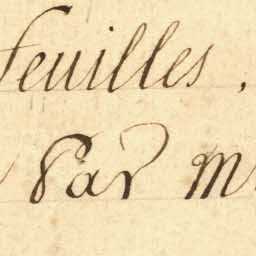 feuilles.
Par M